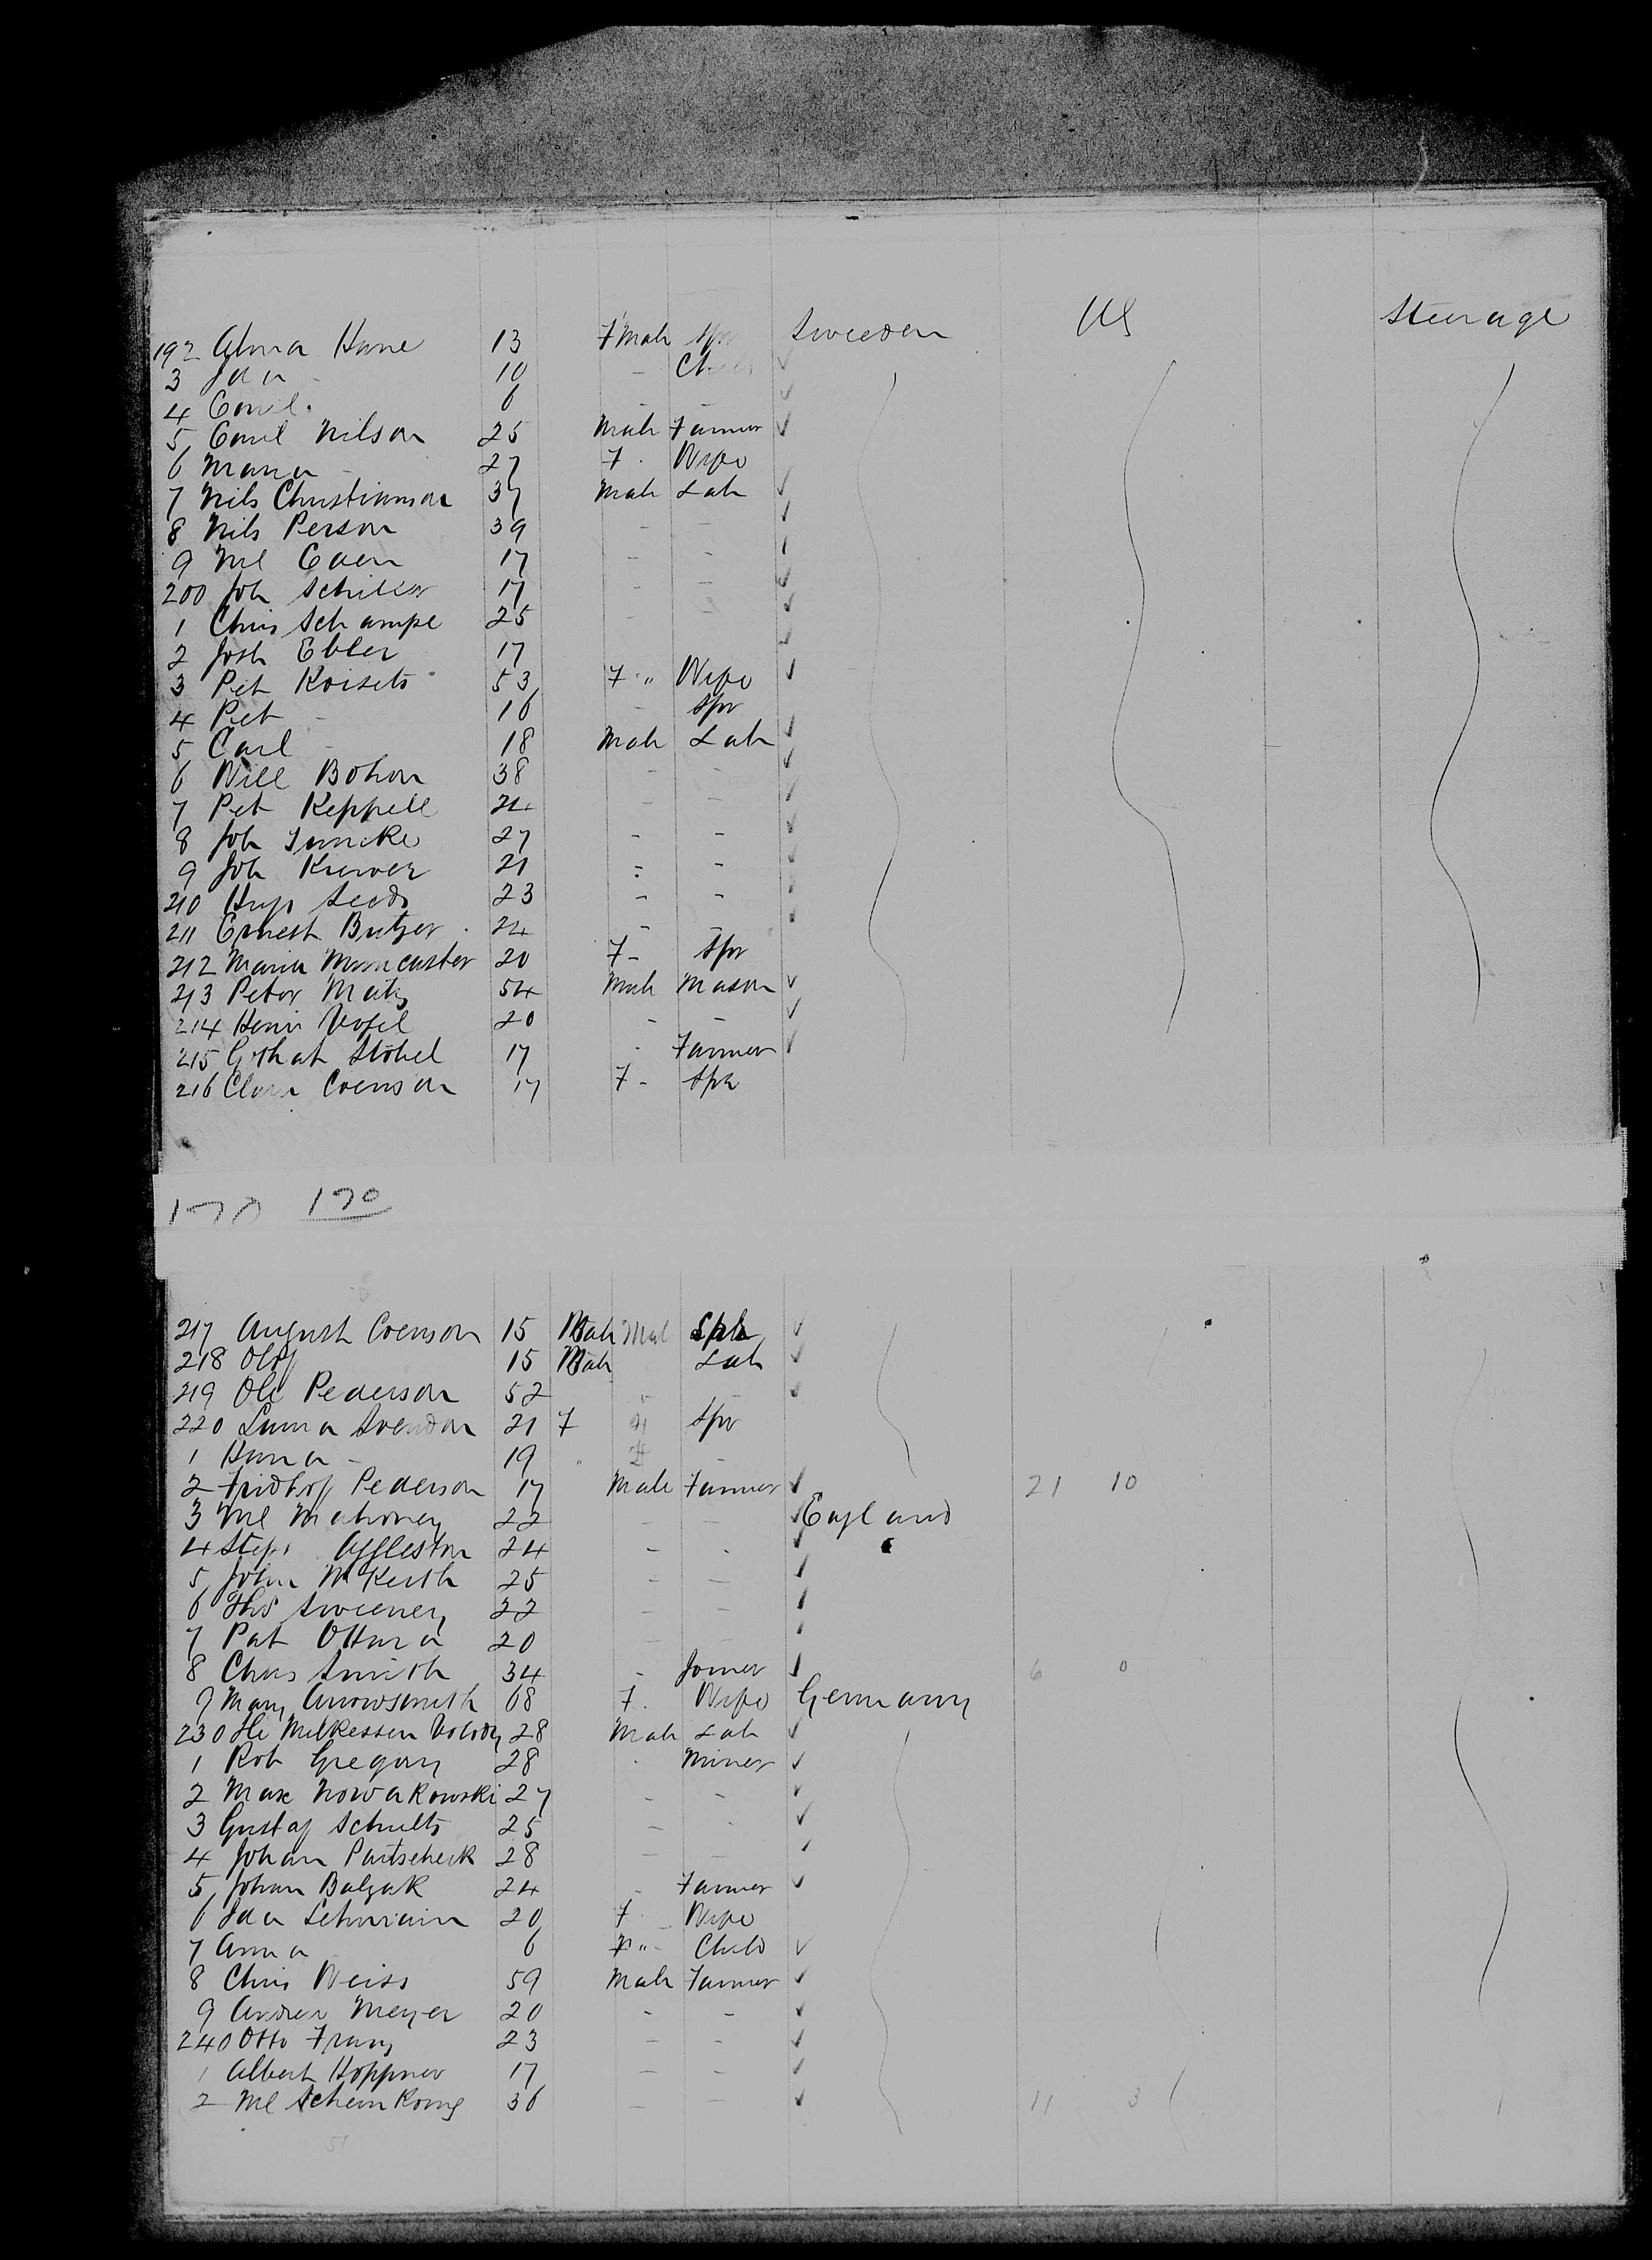 Sweden US Steerage
192 Alma Hane 13 Fmale Spr
3 Ida - 10 - Child
4 Emil. 6 - -
5 Emil Nilson 25 Male Farmer
6 Maria - 27 F. Wife
7 Nils Christianson 37 Male Lab
8 Nils Person 39 - -
9 Ml 17 - -
200 Joh Schiller 17 - -
1 Chris Schampe 25 - -
2 Josh Ebler 17
3 Pet Koisets 53 F " Wife
4 Pet - 16 - Spr
5 Carl - 18 Male Lab
6 Will Bohon 38 - -
7 Pet Keppell 24 - -
8 Joh 27 - -
9 Joh 21 - -
210 Hugo 23 - -
211 Ernest Butzer 24 - -
212 Maria Muncaster 20 F - Spr
213 Peter Matz 54 Male Mason
214 Henri Vogel 20 - -
215 Stobel 17 - Farmer
216 Clara Coenson 17 F - Spr
170 170
217 August Coenson 15 Male Mal
218 Olof 15 Male Lab
219 Ole Pederson 52 - -
220 21 F Spr
1 Hanna - 19 "
2 Fridhof Pederson 17 Male Farmer 21 10
3 Ml Mahoney 22 - - England
4 Steph Eggleston 24 - -
5 John McKeith 25 - -
6 Ths Sweeney 22 - -
7 Pat OHara 20 - -
8 Chas Smith 34 - Joiner 6 0
9 Mary Arrowsmith 68 F. Wife Germany
230 28 Male Lab
1 Rob Gregory 28 - Miner
2 Max Nowakowski 27 - -
3 Gustaf Schults 25 - -
4 Johan Partscheck 28 - -
5 Johan Balzak 24 - Farmer
6 Ida 20 F - Wife
7 Anna 6 F " - Child
8 Chris Weiss 59 Male Farmer
9 Andrea Meyer 20 - -
240 Otto Franz 23 - -
1 Albert Hoppner 17 - -
2 Ml 36 - - 11 3
51